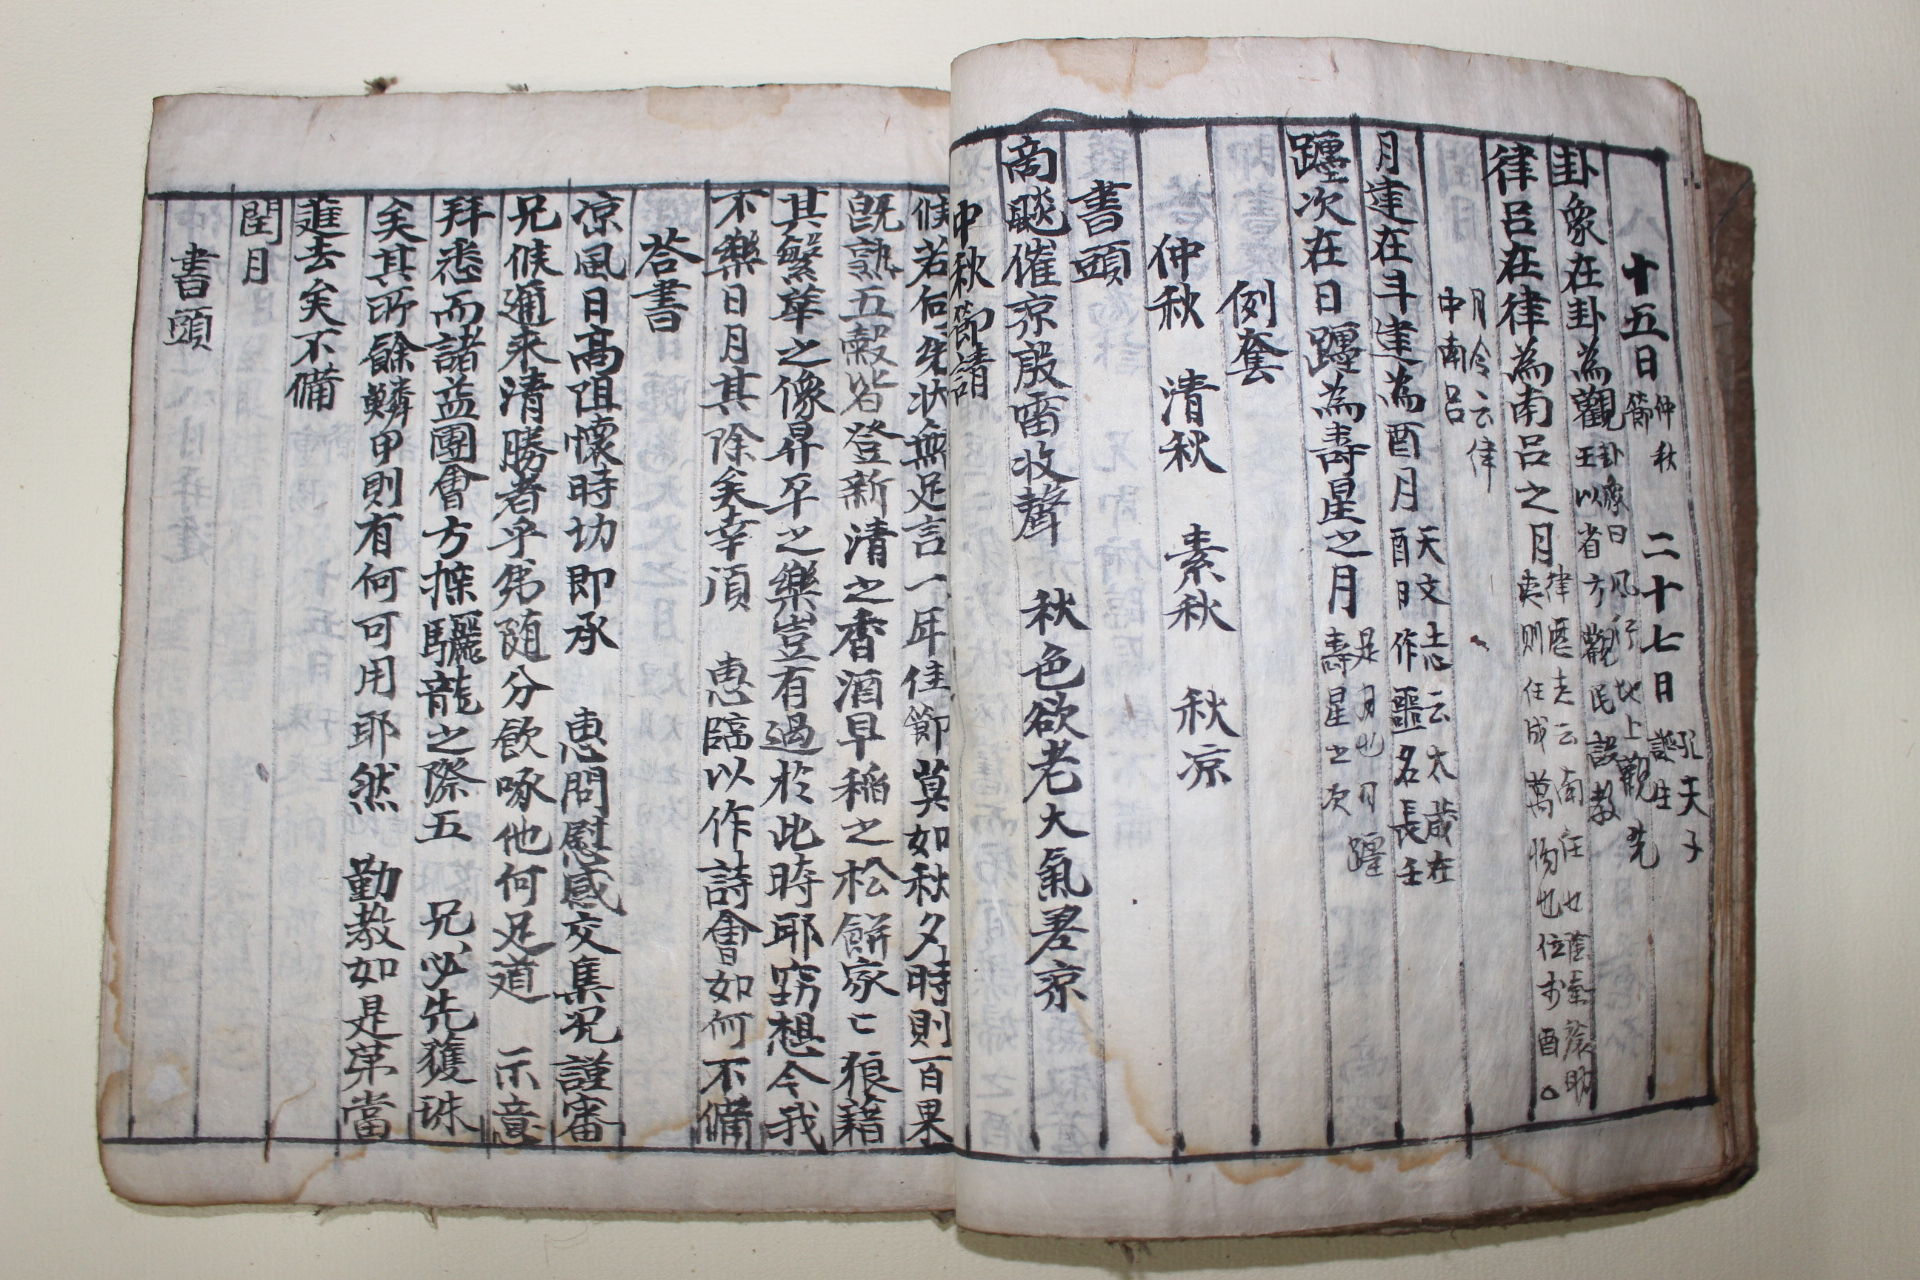 十五日 仲秋節 二十七日 孔夫子誕生
卦象在卦為觀 卦象曰風行地上觀先王以省方觀民設教
律呂在律為南呂之月 律歷志云南任也陰氣旅助夷則任成萬物也位於酉
月令云律中南呂
月建在斗建為酉月 天文志云太歲在酉日作噩名長壬
躔次在日躔為壽星之月 是月也日躔壽星之次
例套
仲秋 清秋 素秋 秋凉
書頭
商飈催凉殷雷收聲 秋色欲老大氣君凉
中秋節請
候若何弟狀無足言一耳佳節莫如秋夕時則百果
旣熟五穀皆登新清之香酒早稲之松餠家亡狼藉
其繁華之像昇平之樂豈有過於此時耶窃想今我
不樂日月其除矣幸須 惠臨以作詩會如何不備
答書
凉風日高阻懷時切即承 惠問慰感交集况謹審
兄候邇來清勝者乎弟随分飮啄他何足道 示意
拜悉而諸益團會方探驪龍之際五 兄必先獲珠
矣其所餘鱗甲則有何可用耶然 勤教如是第當
進去矣不備
閏月
書頭